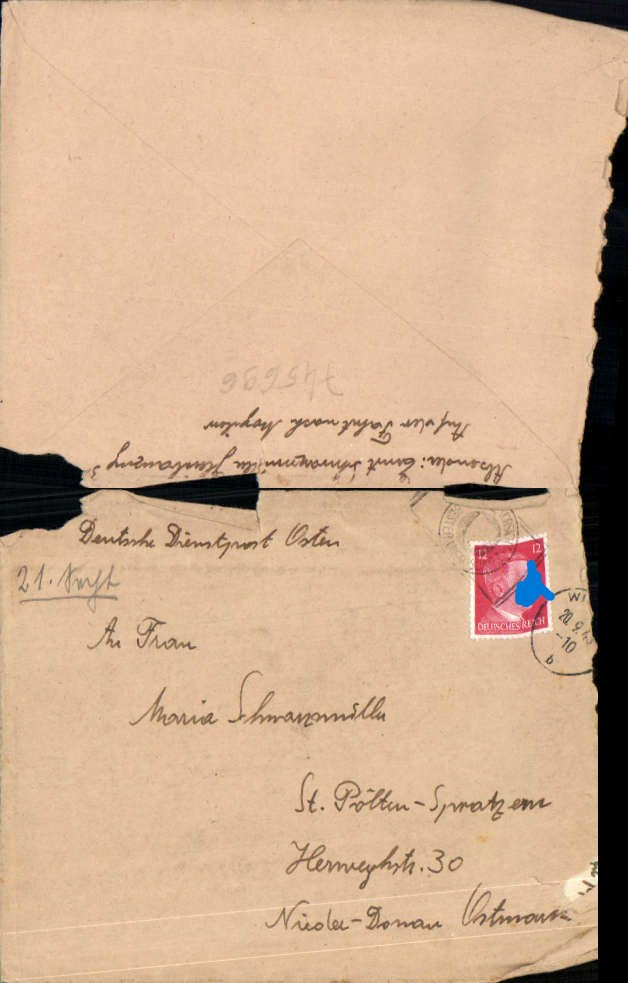 745696
Auf der Fahrt nach Mogilew
Absender: Ernst Schwarzmüller
Deutsche Dienstpost Osten
12 12
DEUTSCHES REICH
21. Sept
WI
20.9.43
-10
b
An Frau
Maria Schwarzmüller
St. Pölten-Spratzern
Herweghstr. 30
Nieder-Donau Ostmark